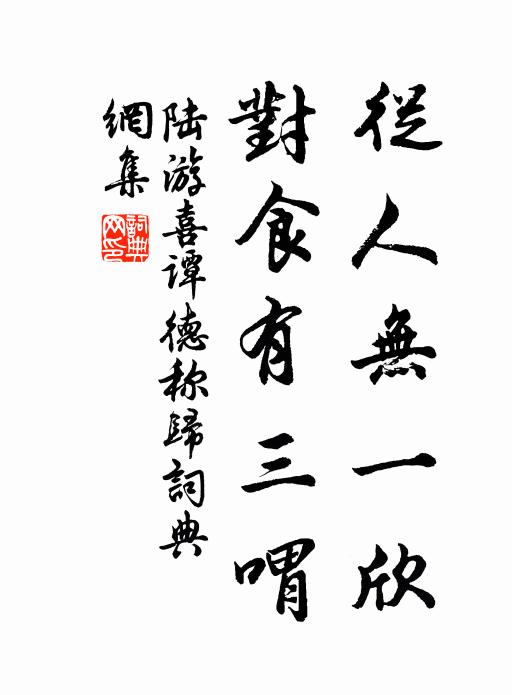 從人無一欣
對食有三喟
陆游喜谭德称歸詞典
網集
詞典
网印